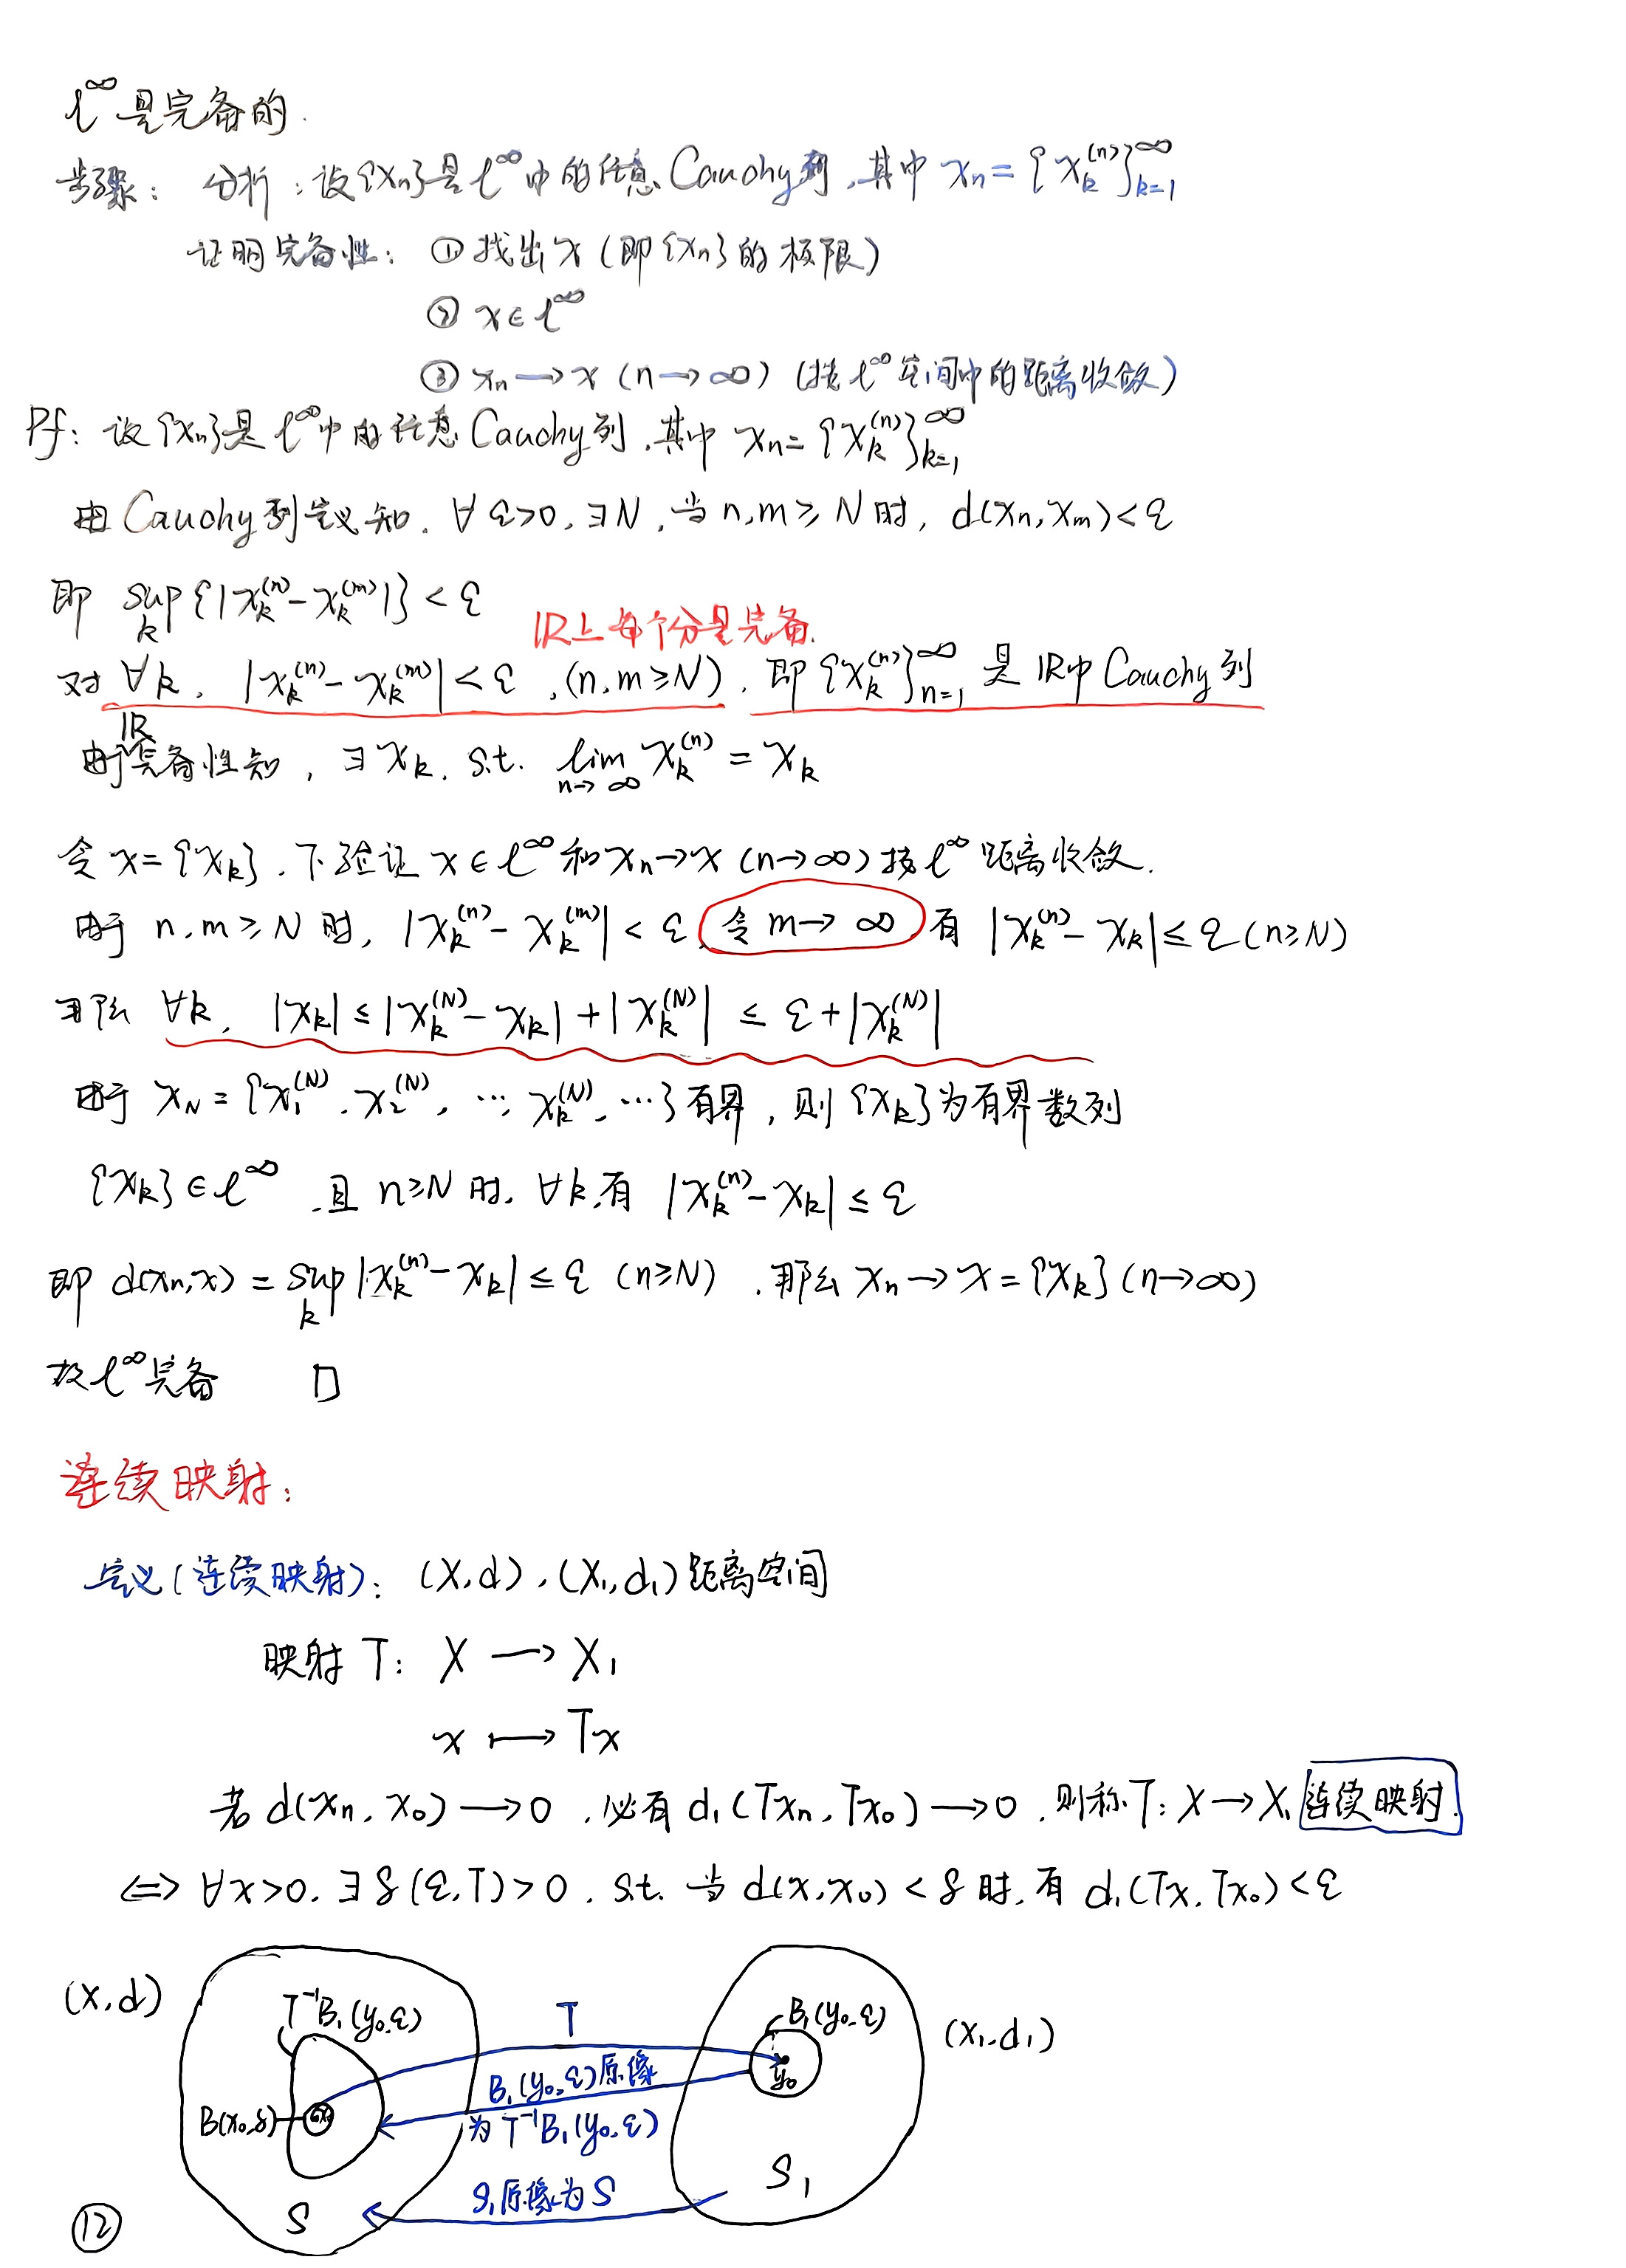 l^∞是完备的.
步骤: 分析:设{xn}是l^∞中的任意Cauchy列,其中 xn={x_k^(n)}_{k=1}^∞
证明完备性: ①找出x(即{xn}的极限)
② x∈l^∞
③ xn→x (n→∞) (按l^∞空间中的距离收敛)
Pf: 设{xn}是l^∞中的任意Cauchy列,其中 xn={x_k^(n)}_{k=1}^∞
由Cauchy列定义知. ∀ε>0,∃N,当n,m≥N时, d(xn,xm)<ε
即 sup_k{|x_k^(n)-x_k^(m)|}<ε
IR上每个分是完备.
对∀k, |x_k^(n)-x_k^(m)|<ε,(n,m≥N). 即{x_k^(n)}_{n=1}^∞ 是IR中Cauchy列
由于IR完备性知, ∃x_k. s.t. lim_{n→∞} x_k^(n)=x_k
令x={x_k}.下验证x∈l^∞和xn→x (n→∞)按l^∞距离收敛.
由于 n,m≥N时, |x_k^(n)-x_k^(m)|<ε,令m→∞ 有 |x_k^(n)-x_k|≤ε(n≥N)
那么 ∀k, |x_k|≤|x_k^(N)-x_k|+|x_k^(N)| ≤ ε+|x_k^(N)|
由于 x_N={x_1^(N),x_2^(N),…,x_k^(N),…}有界,则{x_k}为有界数列
{x_k}∈l^∞ ,且n≥N时,∀k,有 |x_k^(n)-x_k|≤ε
即 d(xn,x)=sup_k|x_k^(n)-x_k|≤ε (n≥N) ,那么xn→x={x_k}(n→∞)
故l^∞完备 □
连续映射:
定义(连续映射): (X,d),(X₁,d₁)距离空间
映射T: X → X₁
x ↦ Tx
若d(xn,x₀)→0,必有d₁(Txn,Tx₀)→0,则称T:X→X₁连续映射.
⟺ ∀x>0,∃δ(ε,T)>0,s.t. 当d(x,x₀)<δ时,有d₁(Tx,Tx₀)<ε
(X,d)
T⁻¹B₁(y₀,ε)
T
B₁(y₀,ε)
(X₁,d₁)
y₀
B₁(y₀,ε)原像
为T⁻¹B₁(y₀,ε)
B(x₀,δ)
x₀
S₁
S₁原像为S
S
⑫